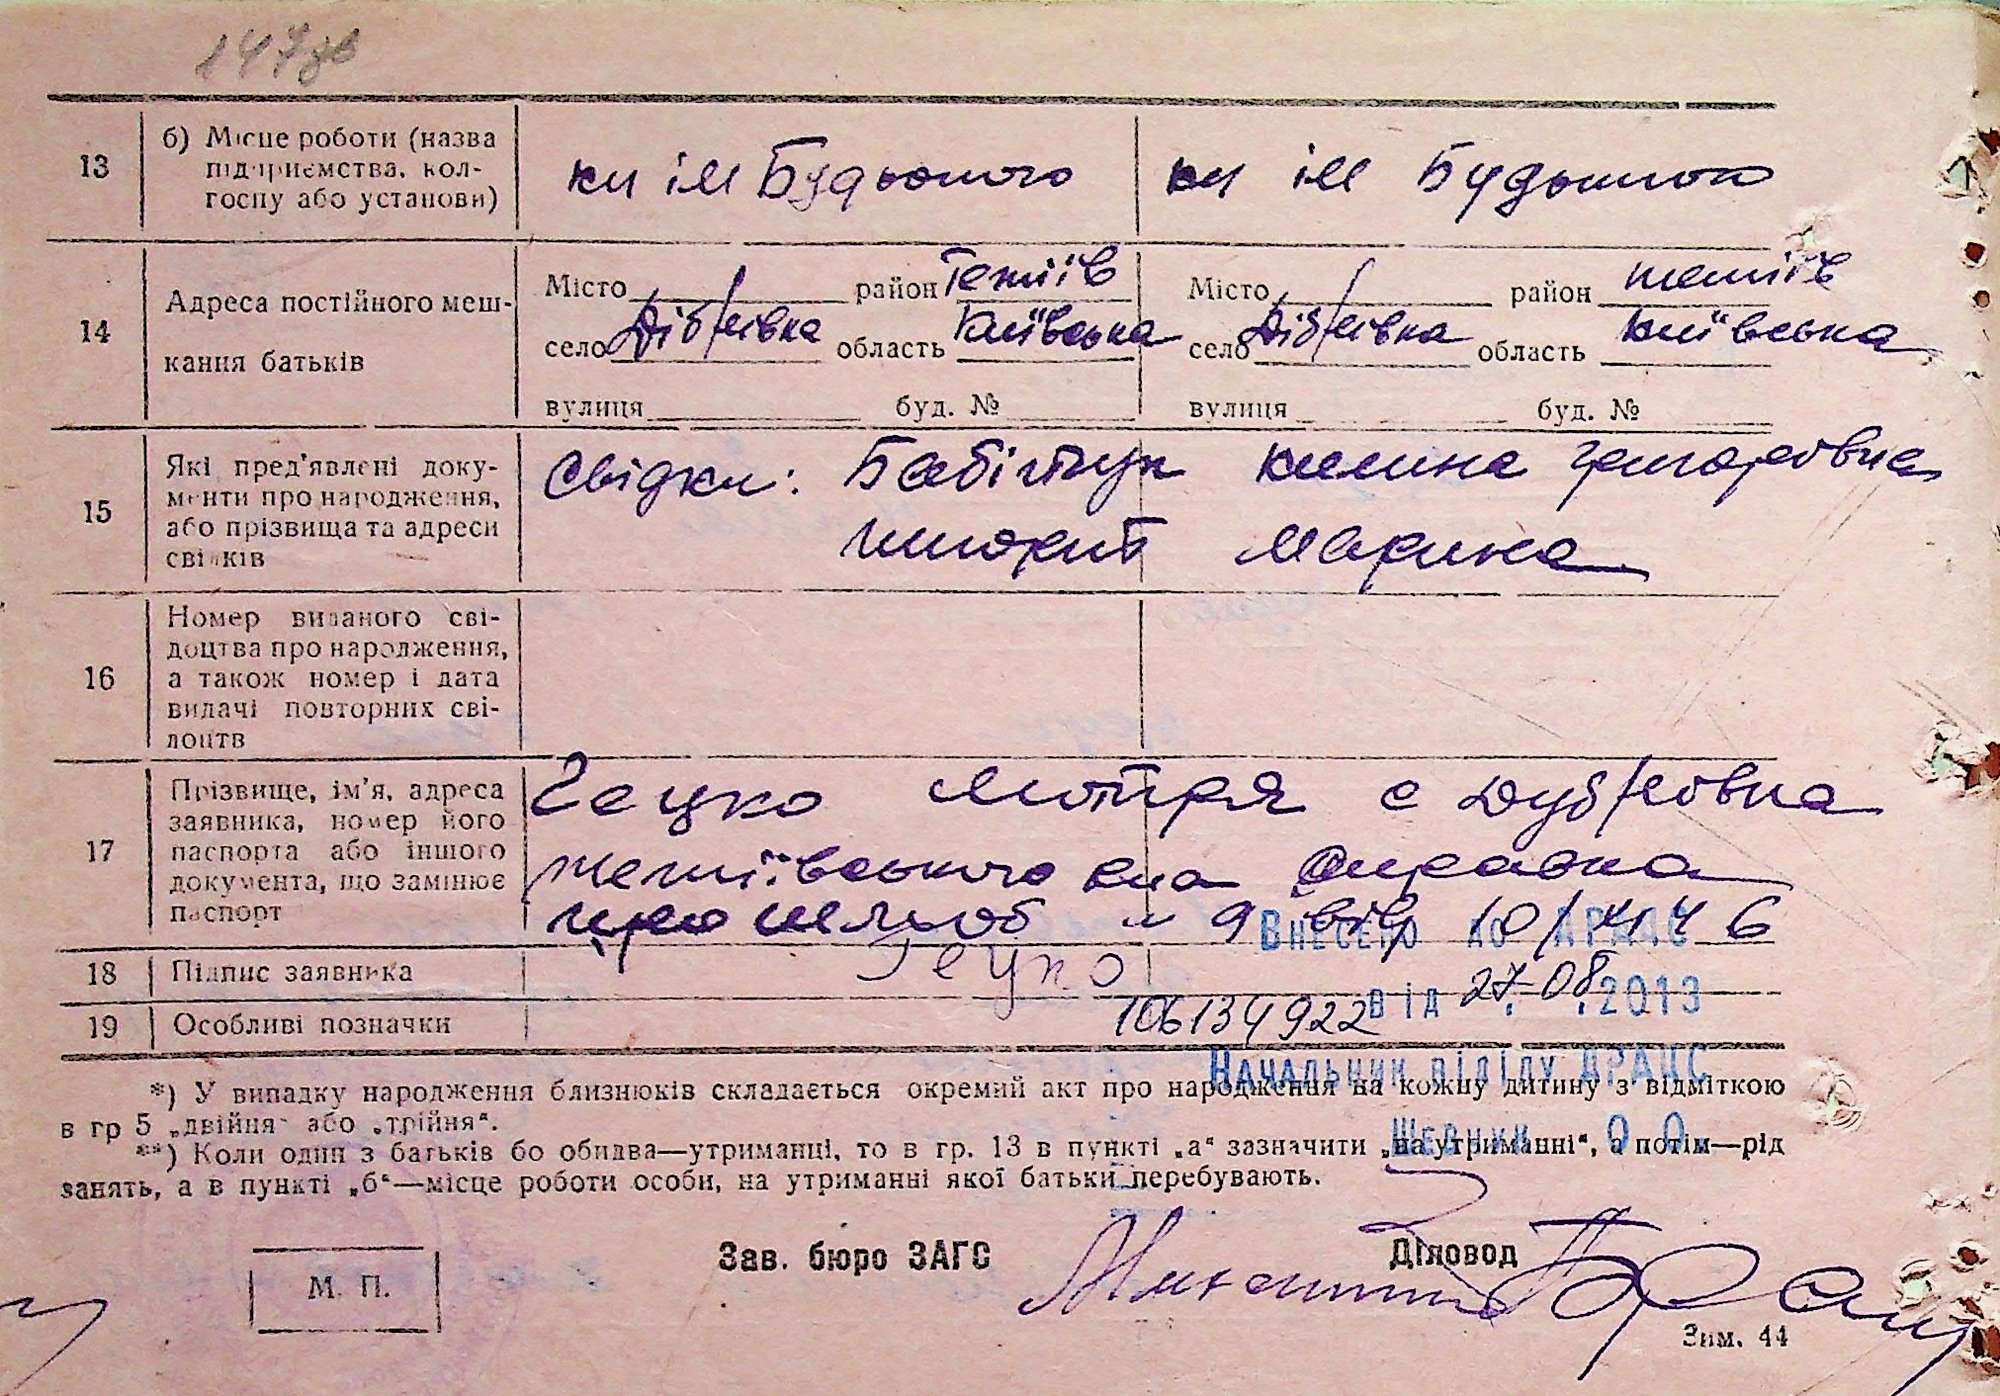 147 зв
13 б) Місце роботи (назва підприємства, колгоспу або установи) кп ім Будьоного кп ім Будьоного
14 Адреса постійного мешкання батьків
Місто район Тетіїв Місто район тетіїв
село Дібрівка область Київська село Дібрівка область Київська
вулиця буд. № вулиця буд. №
15 Які пред'явлені документи про народження, або прізвища та адреси свідків
Свідки: Килина Григоровна
Марина
16 Номер виданого свідоцтва про народження, а також номер і дата видачі повторних свідоцтв
17 Прізвище, ім'я, адреса заявника, номер його паспорта або іншого документа, що замінює паспорт
Гецко Мотря с Дубровка
тетіївського справка
про шлюб 9 10/ 6
Внесено до ДРАЦС
18 Підпис заявника Гецко
від 27.08.2013
19 Особливі позначки 106134922
Начальник відділу ДРАЦС
*) У випадку народження близнюків складається окремий акт про народження на кожну дитину з відміткою
в гр 5 „двійня“ або „трійня“.
Шевчук О.О.
**) Коли один з батьків бо обидва—утриманці, то в гр. 13 в пункті „а“ зазначити „на утриманні“, а потім—рід
занять, а в пункті „б“—місце роботи особи, на утриманні якої батьки перебувають.
Зав. бюро ЗАГС Діловод
М. П.
Зим. 44